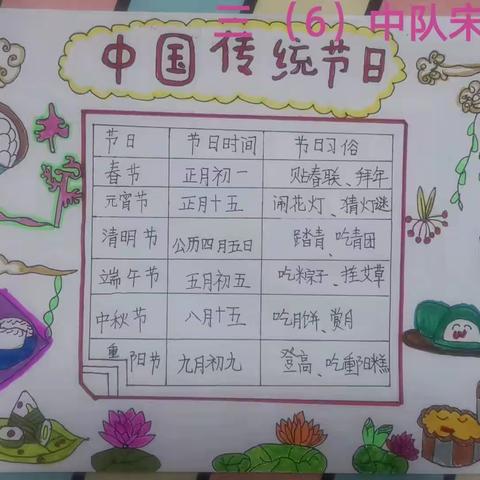 三（6）中队宋
中国传统节日
节日 节日时间 节日习俗
春节 正月初一 贴春联、拜年
元宵节 正月十五 闹花灯、猜灯谜
清明节 公历四月五日 踏青、吃青团
端午节 五月初五 吃粽子、挂艾草
中秋节 八月十五 吃月饼、赏月
重阳节 九月初九 登高、吃重阳糕